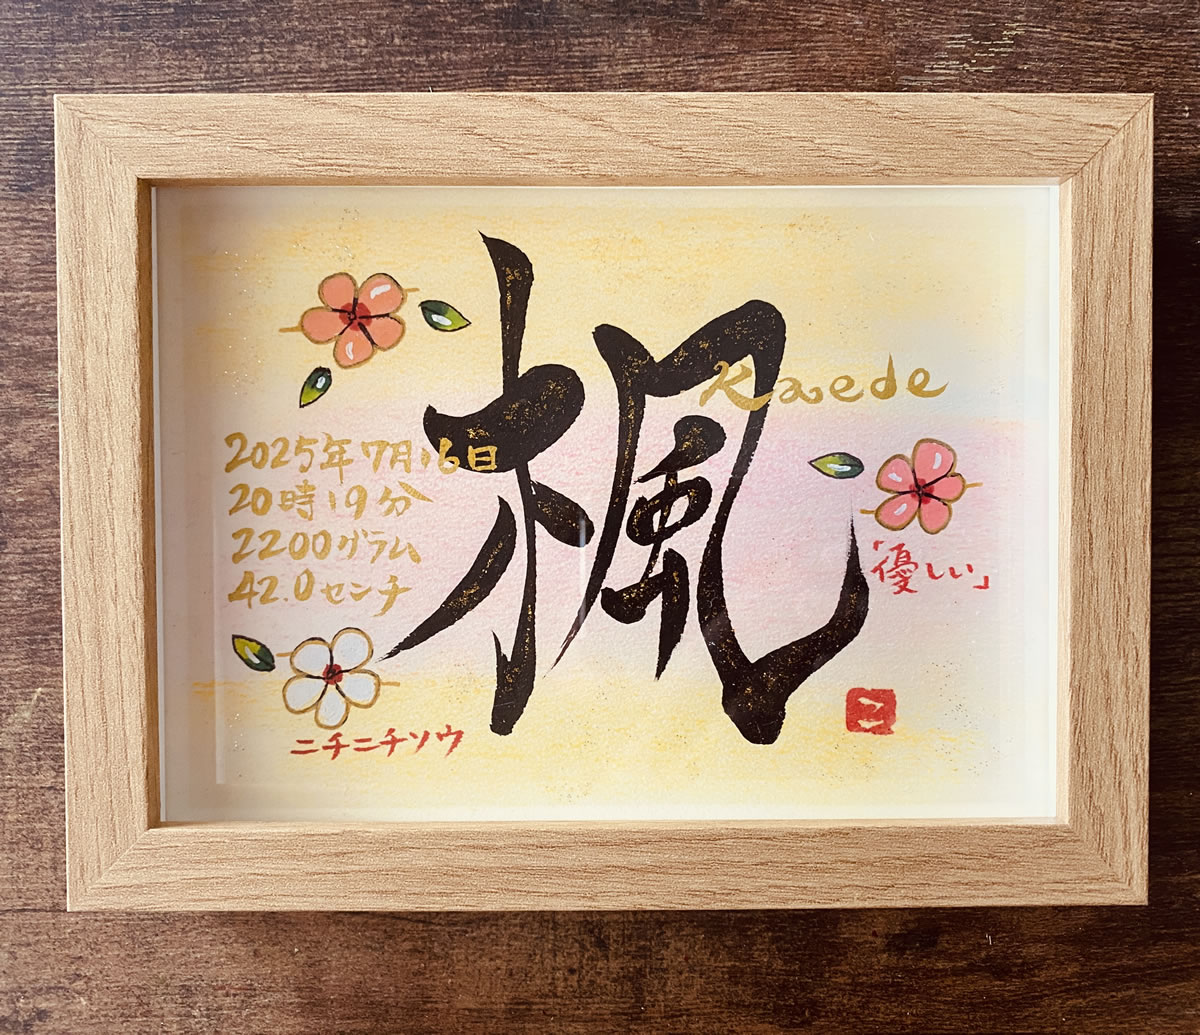 楓
Kaede
2025年7月16日
20時19分
2200グラム
42.0センチ
「優しい」
ニチニチソウ